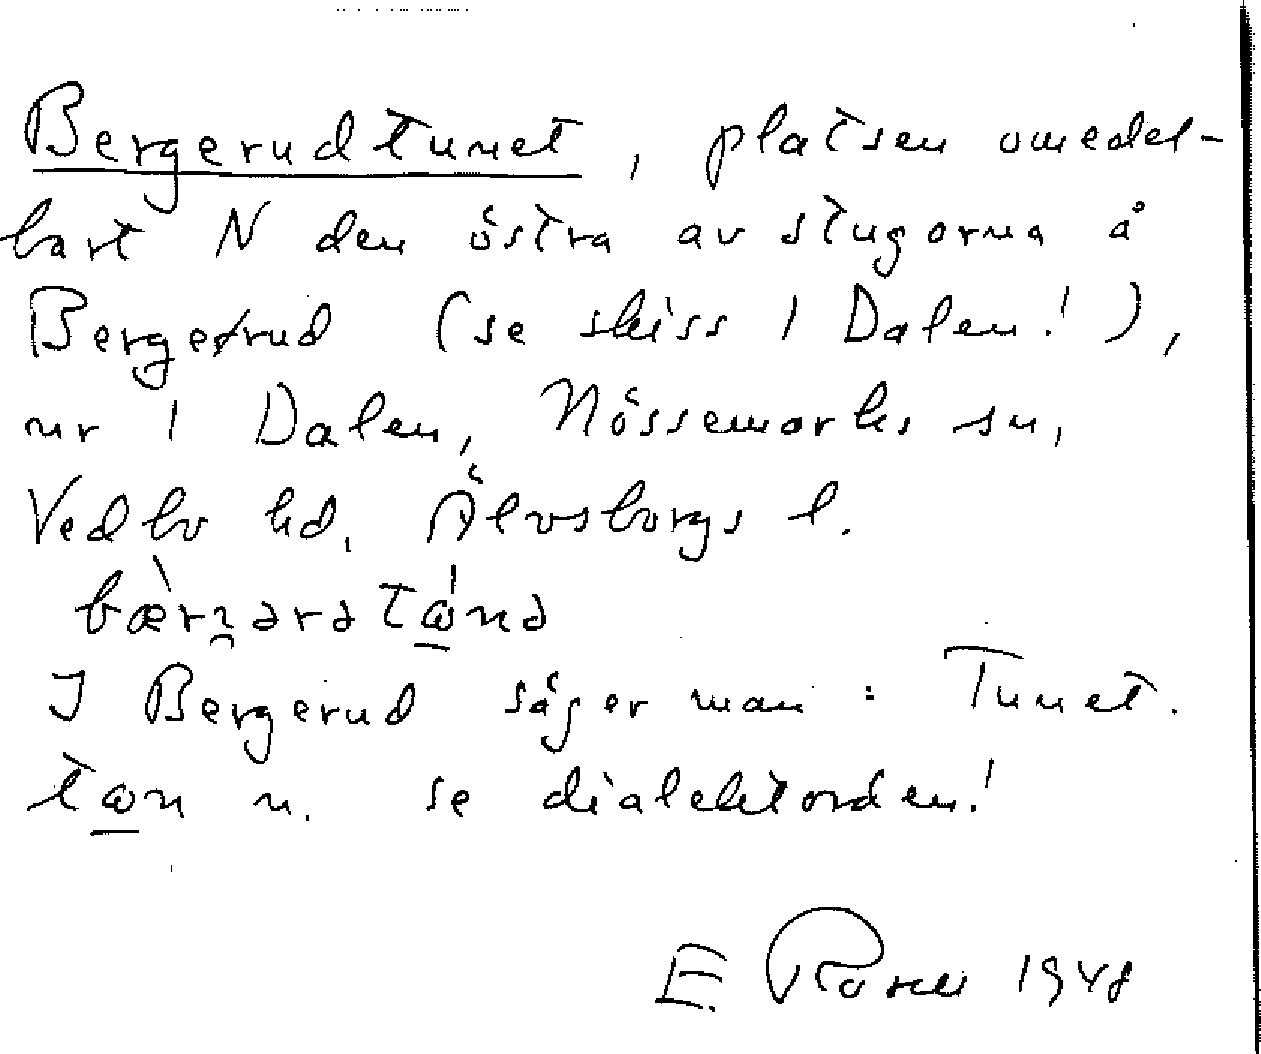 Bergerudtunet, platsen omedel-
bart N den östra av stugorna å
Bergerud (se skiss 1 Dalen!),
nr 1 Dalen, Nössemarks sn,
Vedbo hd, Älvsborgs l.
I Bergerud säger man: Tunet.
n. se dialektorden!
E. 1948